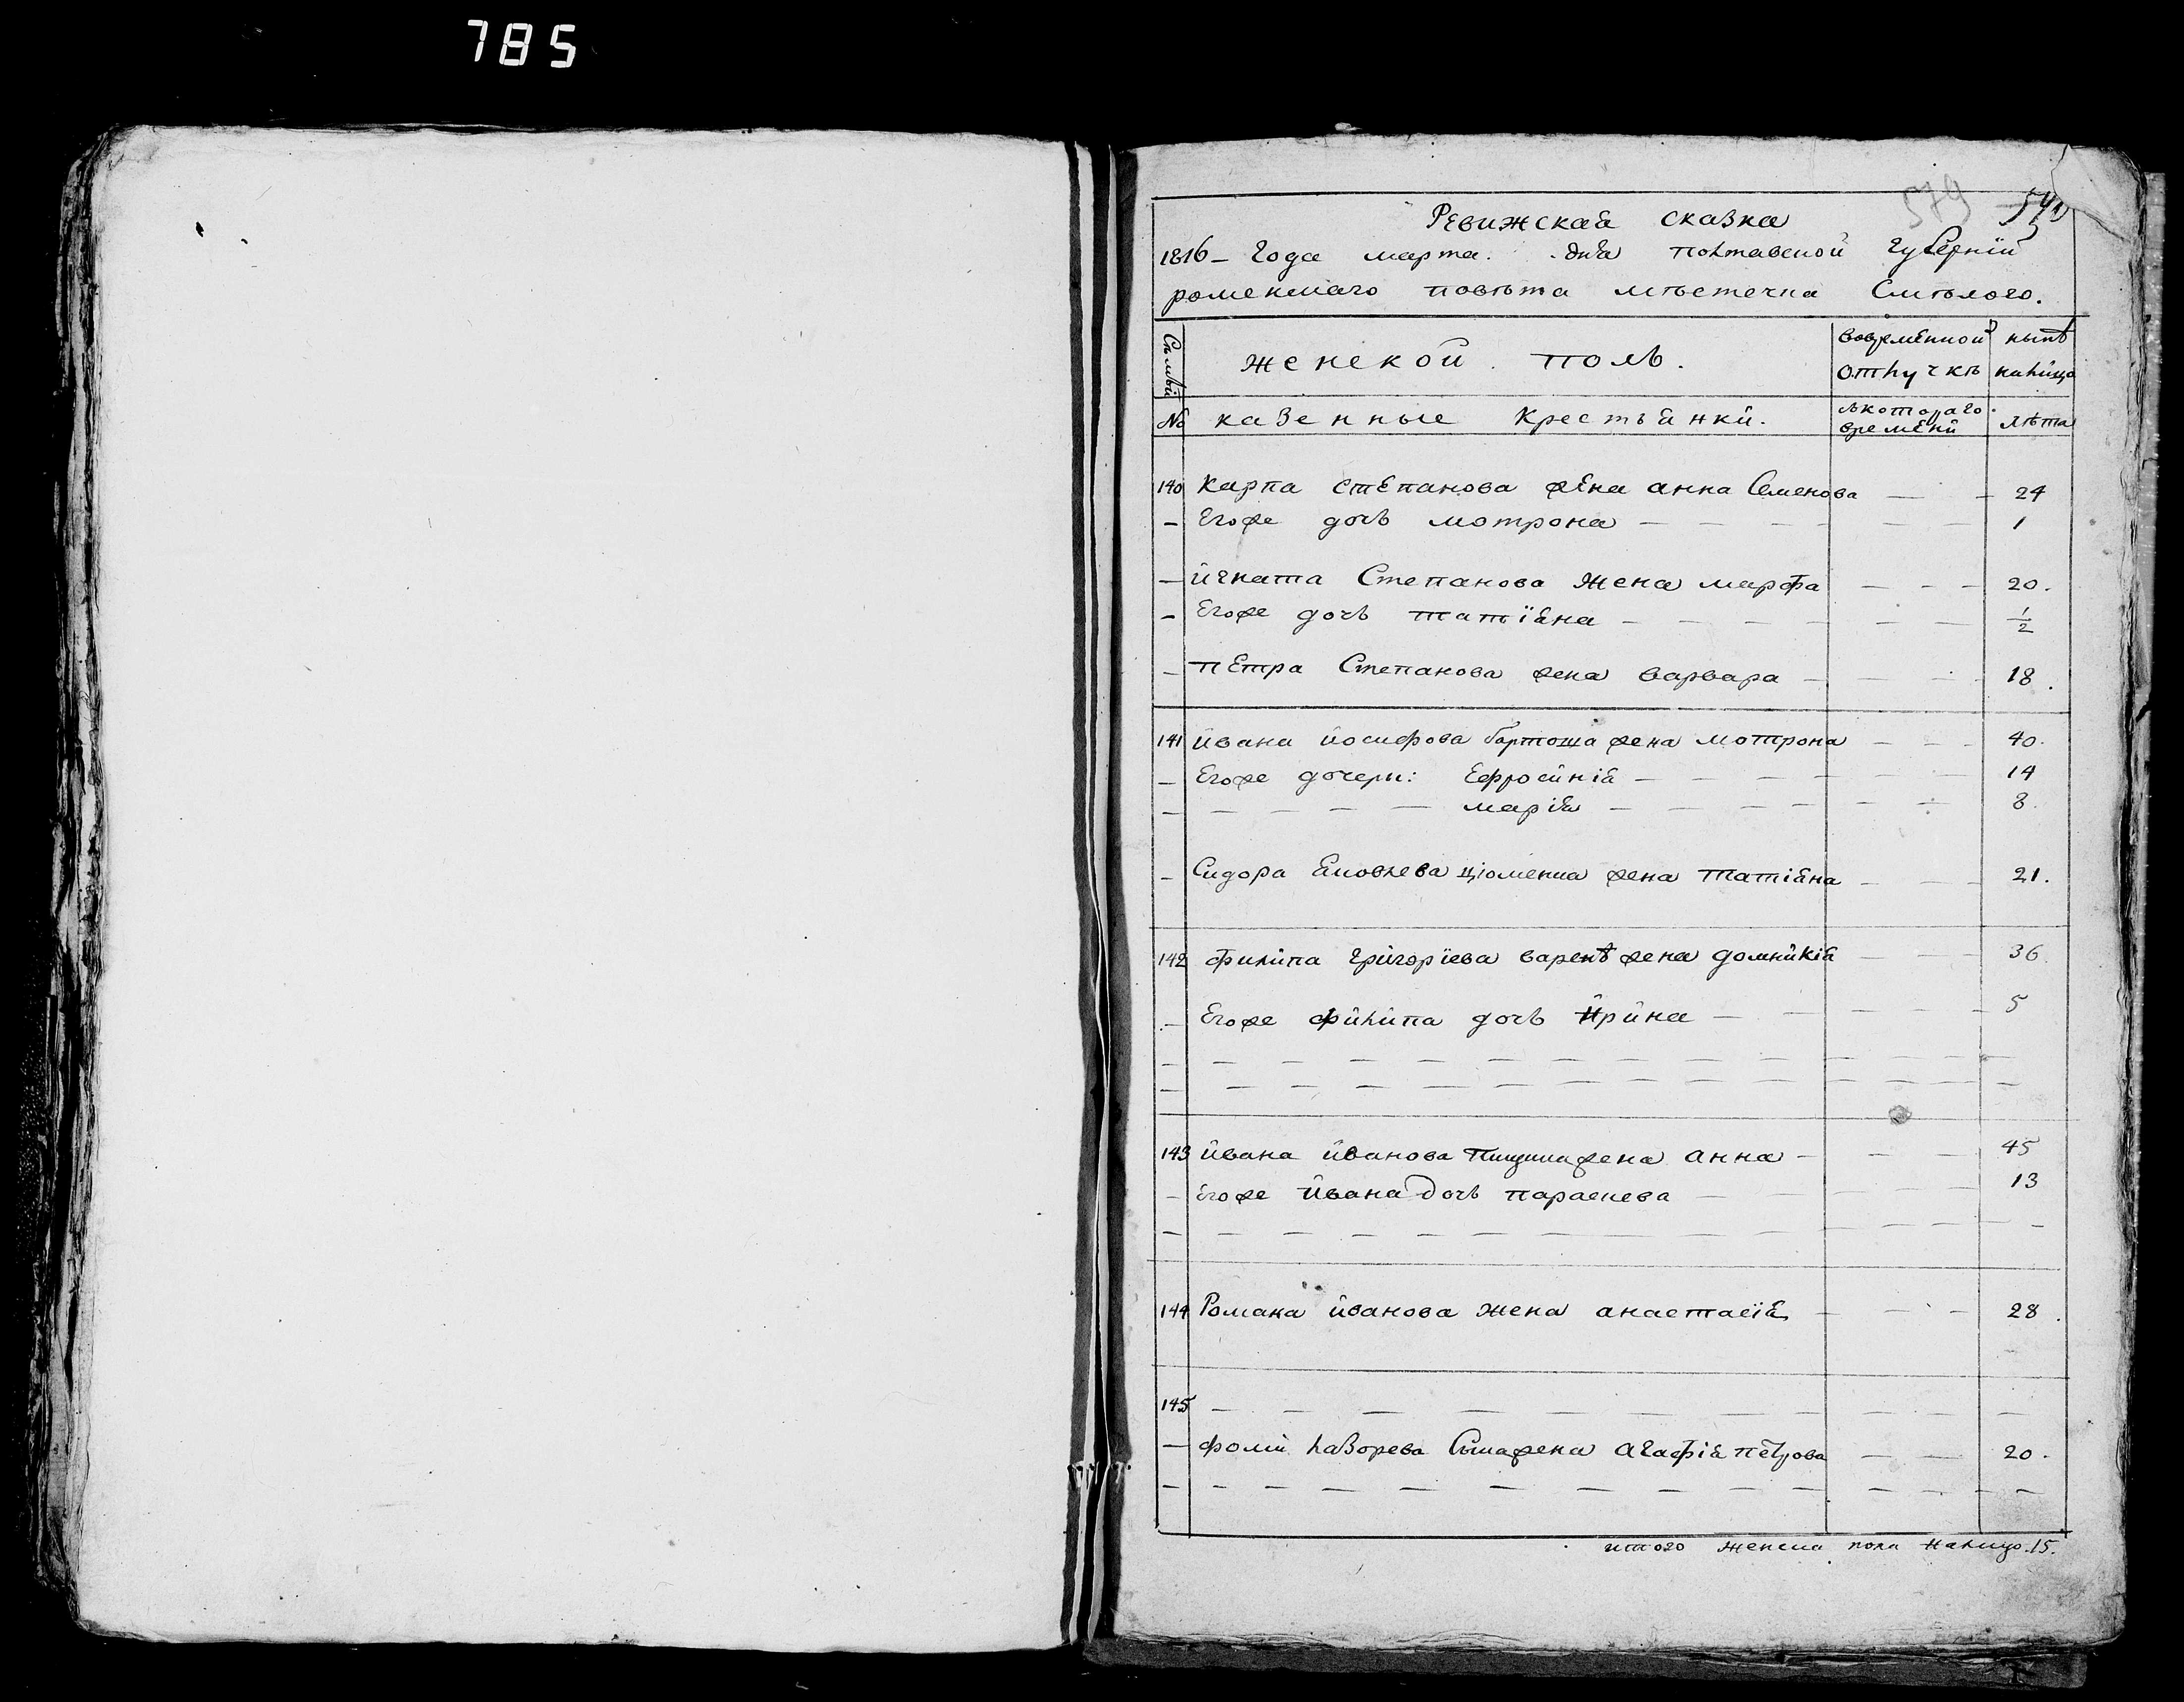 785
579
Ревижская сказка
1816 – Года марта . дня полтавской губернии
роменскаго повѣта мѣстечка Смѣлого.
Семьи женской поль. вовременной отлучкѣ нынѣ налицо
№ казенные крестьянки. съкотораго времени лѣта
140 Карпа Степанова жена анна Семенова — — 24
– Егоже дочь мотрона — — — — — — 1
– Игната Степанова жена марфа — — — 20.
– Егоже дочь татіяна — — — — — — 1/2
– петра Степанова жена варвара — — — 18.
141 Ивана Иосифова бартоша жена мотрона — — — 40.
– Егоже дочери: Ефросинія — — — — — 14
– — — — — марія — — — — — — 8.
– Сидора Яковлева жена татіяна — — — 21.
142 филипа григоріева жена домникія — — — 36.
– Егоже филипа дочь Ирина — — — — — 5
– — — — — — — — — — — — — —
– — — — — — — — — — — — — —
143 Ивана Иванова жена анна — — — 45
– Егоже Ивана дочь параскева — — — — 13
– — — — — — — — — — — — — –
144 Романа Иванова жена анастасія — — — 28.
145 — — — — — — — — — — — —
— фоми лазорева жена агафія петрова — — 20.
– – – — — — — — — — — — – –
итого женска пола налицо. 15.